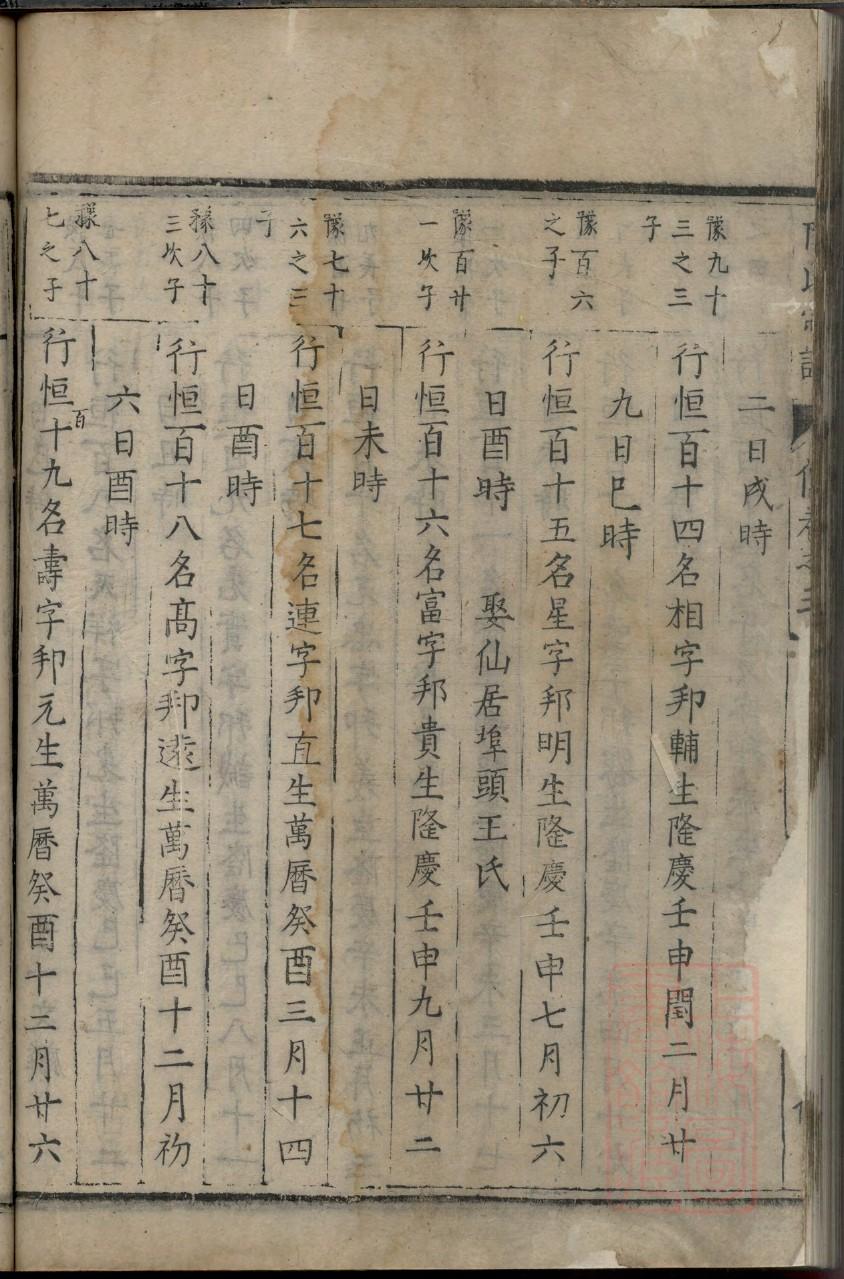 二日戌時
豫九十
三之三
子
行恒百十四名相字邦輔生隆慶壬申閏二月廿
九日巳時
豫百六
之子
行恒百十五名星字邦明生隆慶壬申七月初六
日酉時 娶仙居埠頭王氏
豫百廿
一次子
行恒百十六名富字邦貴生隆慶壬申九月廿二
日未時
豫七十
六之三
子
行恒百十七名連字邦直生萬曆癸酉三月十四
日酉時
豫八十
三次子
行恒百十八名高字邦遠生萬曆癸酉十二月初
六日酉時
豫八十
七之子
行恒百十九名壽字邦元生萬曆癸酉十三月廿六